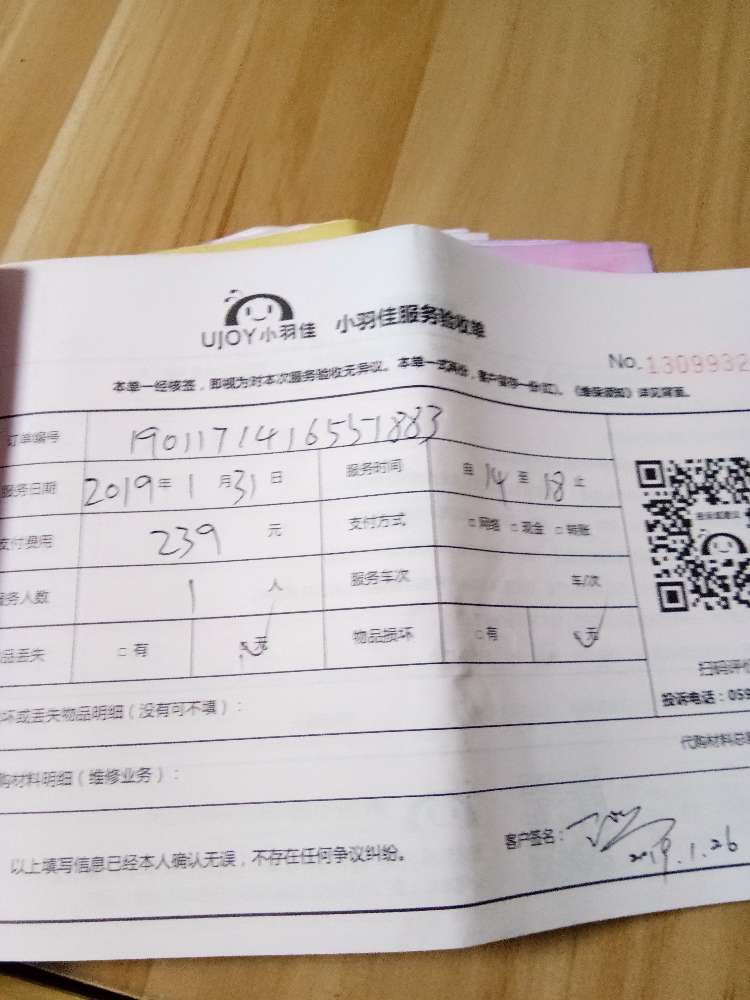 UJOY小羽佳 小羽佳服务验收单
No.1309932
本单一经核签，即视为对本次服务验收无异议。本单一式两份，客户留存一份(红)。《维保须知》详见背面。
订单编号 1901171416551883
服务日期 2019年1月31日 服务时间 自14至18止
支付费用 239元 支付方式 □网络 □现金 □转账
服务人数 1人 服务车次 车/次
品丢失 □有 ☑无 物品损坏 □有 ☑无
扫码评价
坏或丢失物品明细（没有可不填）：
投诉电话：059
代购材料总
购材料明细（维修业务）：
客户签名：
2019.1.26
以上填写信息已经本人确认无误，不存在任何争议纠纷。